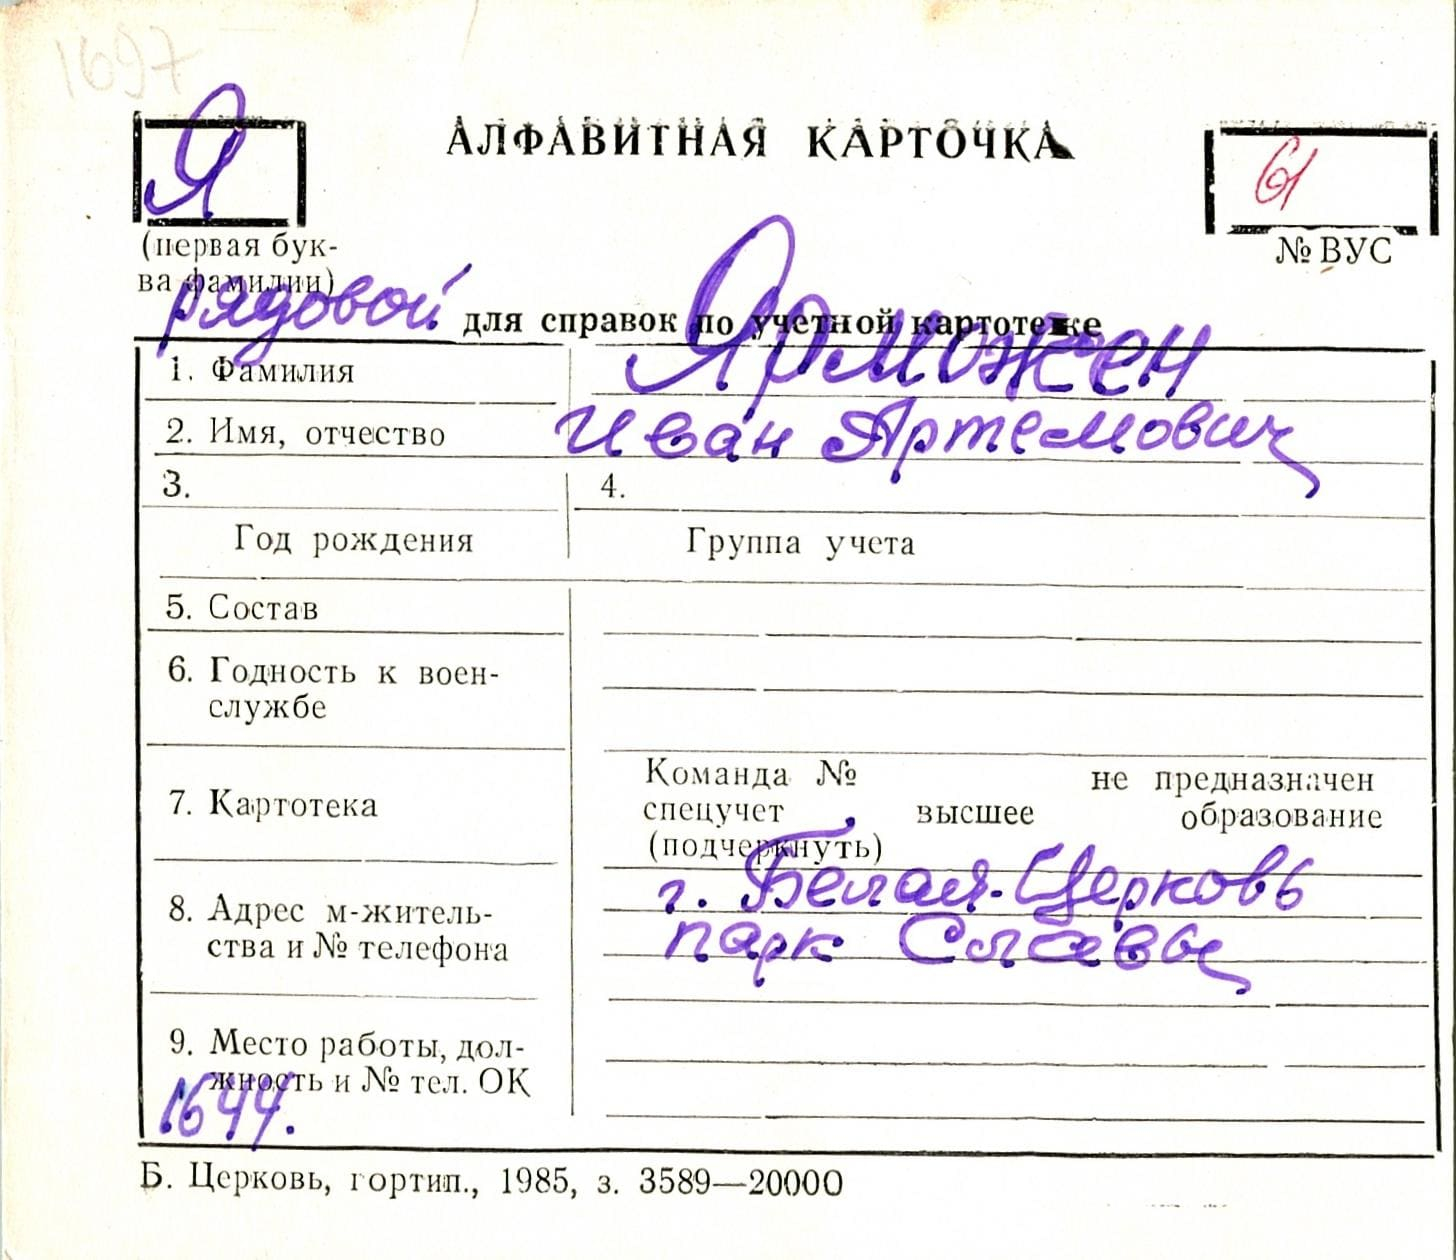 1697
Я
АЛФАВИТНАЯ КАРТОЧКА
61
(первая бук-
ва фамилии)
№ ВУС
рядовой
для справок по учетной картотеке
1. Фамилия Ярможен
2. Имя, отчество Иван Артемович
3. 4.
Год рождения Группа учета
5. Состав
6. Годность к воен-
службе
7. Картотека
Команда № не предназначен
спецучет , высшее образование
(подчеркнуть)
8. Адрес м-житель-
ства и № телефона
г. Белая-Церковь
парк
9. Место работы, дол-
жность и № тел. ОК
1644.
Б. Церковь, гортип., 1985, з. 3589—20000